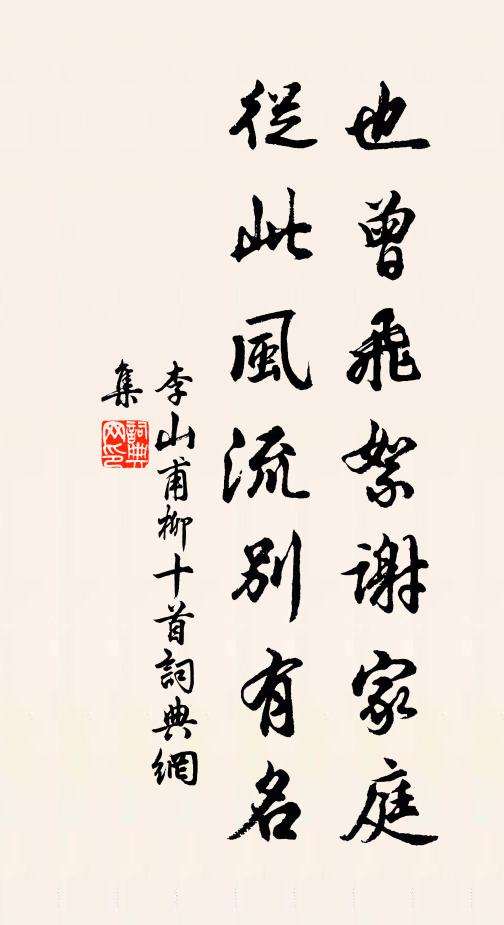 也曾飛絮謝家庭
從此風流別有名
李山甫柳十首詞典網
集
詞典網印